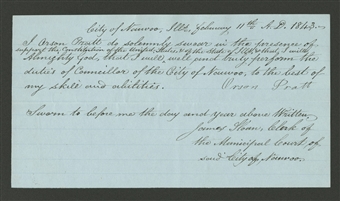 City of Nauvoo, Ills. February 11th A.D. 1843.
I Orson Pratt do solemnly swear in the presence of
support the Constitution of the United States & of the State of Illinois & that I will
Almighty God, that I will well and truly perform the
duties of Councillor of the City of Nauvoo, to the best of
my skill and abilities. Orson Pratt
Sworn to before me the day and year above written.
James Sloan, Clerk of
the Municipal Court of
said City of Nauvoo.